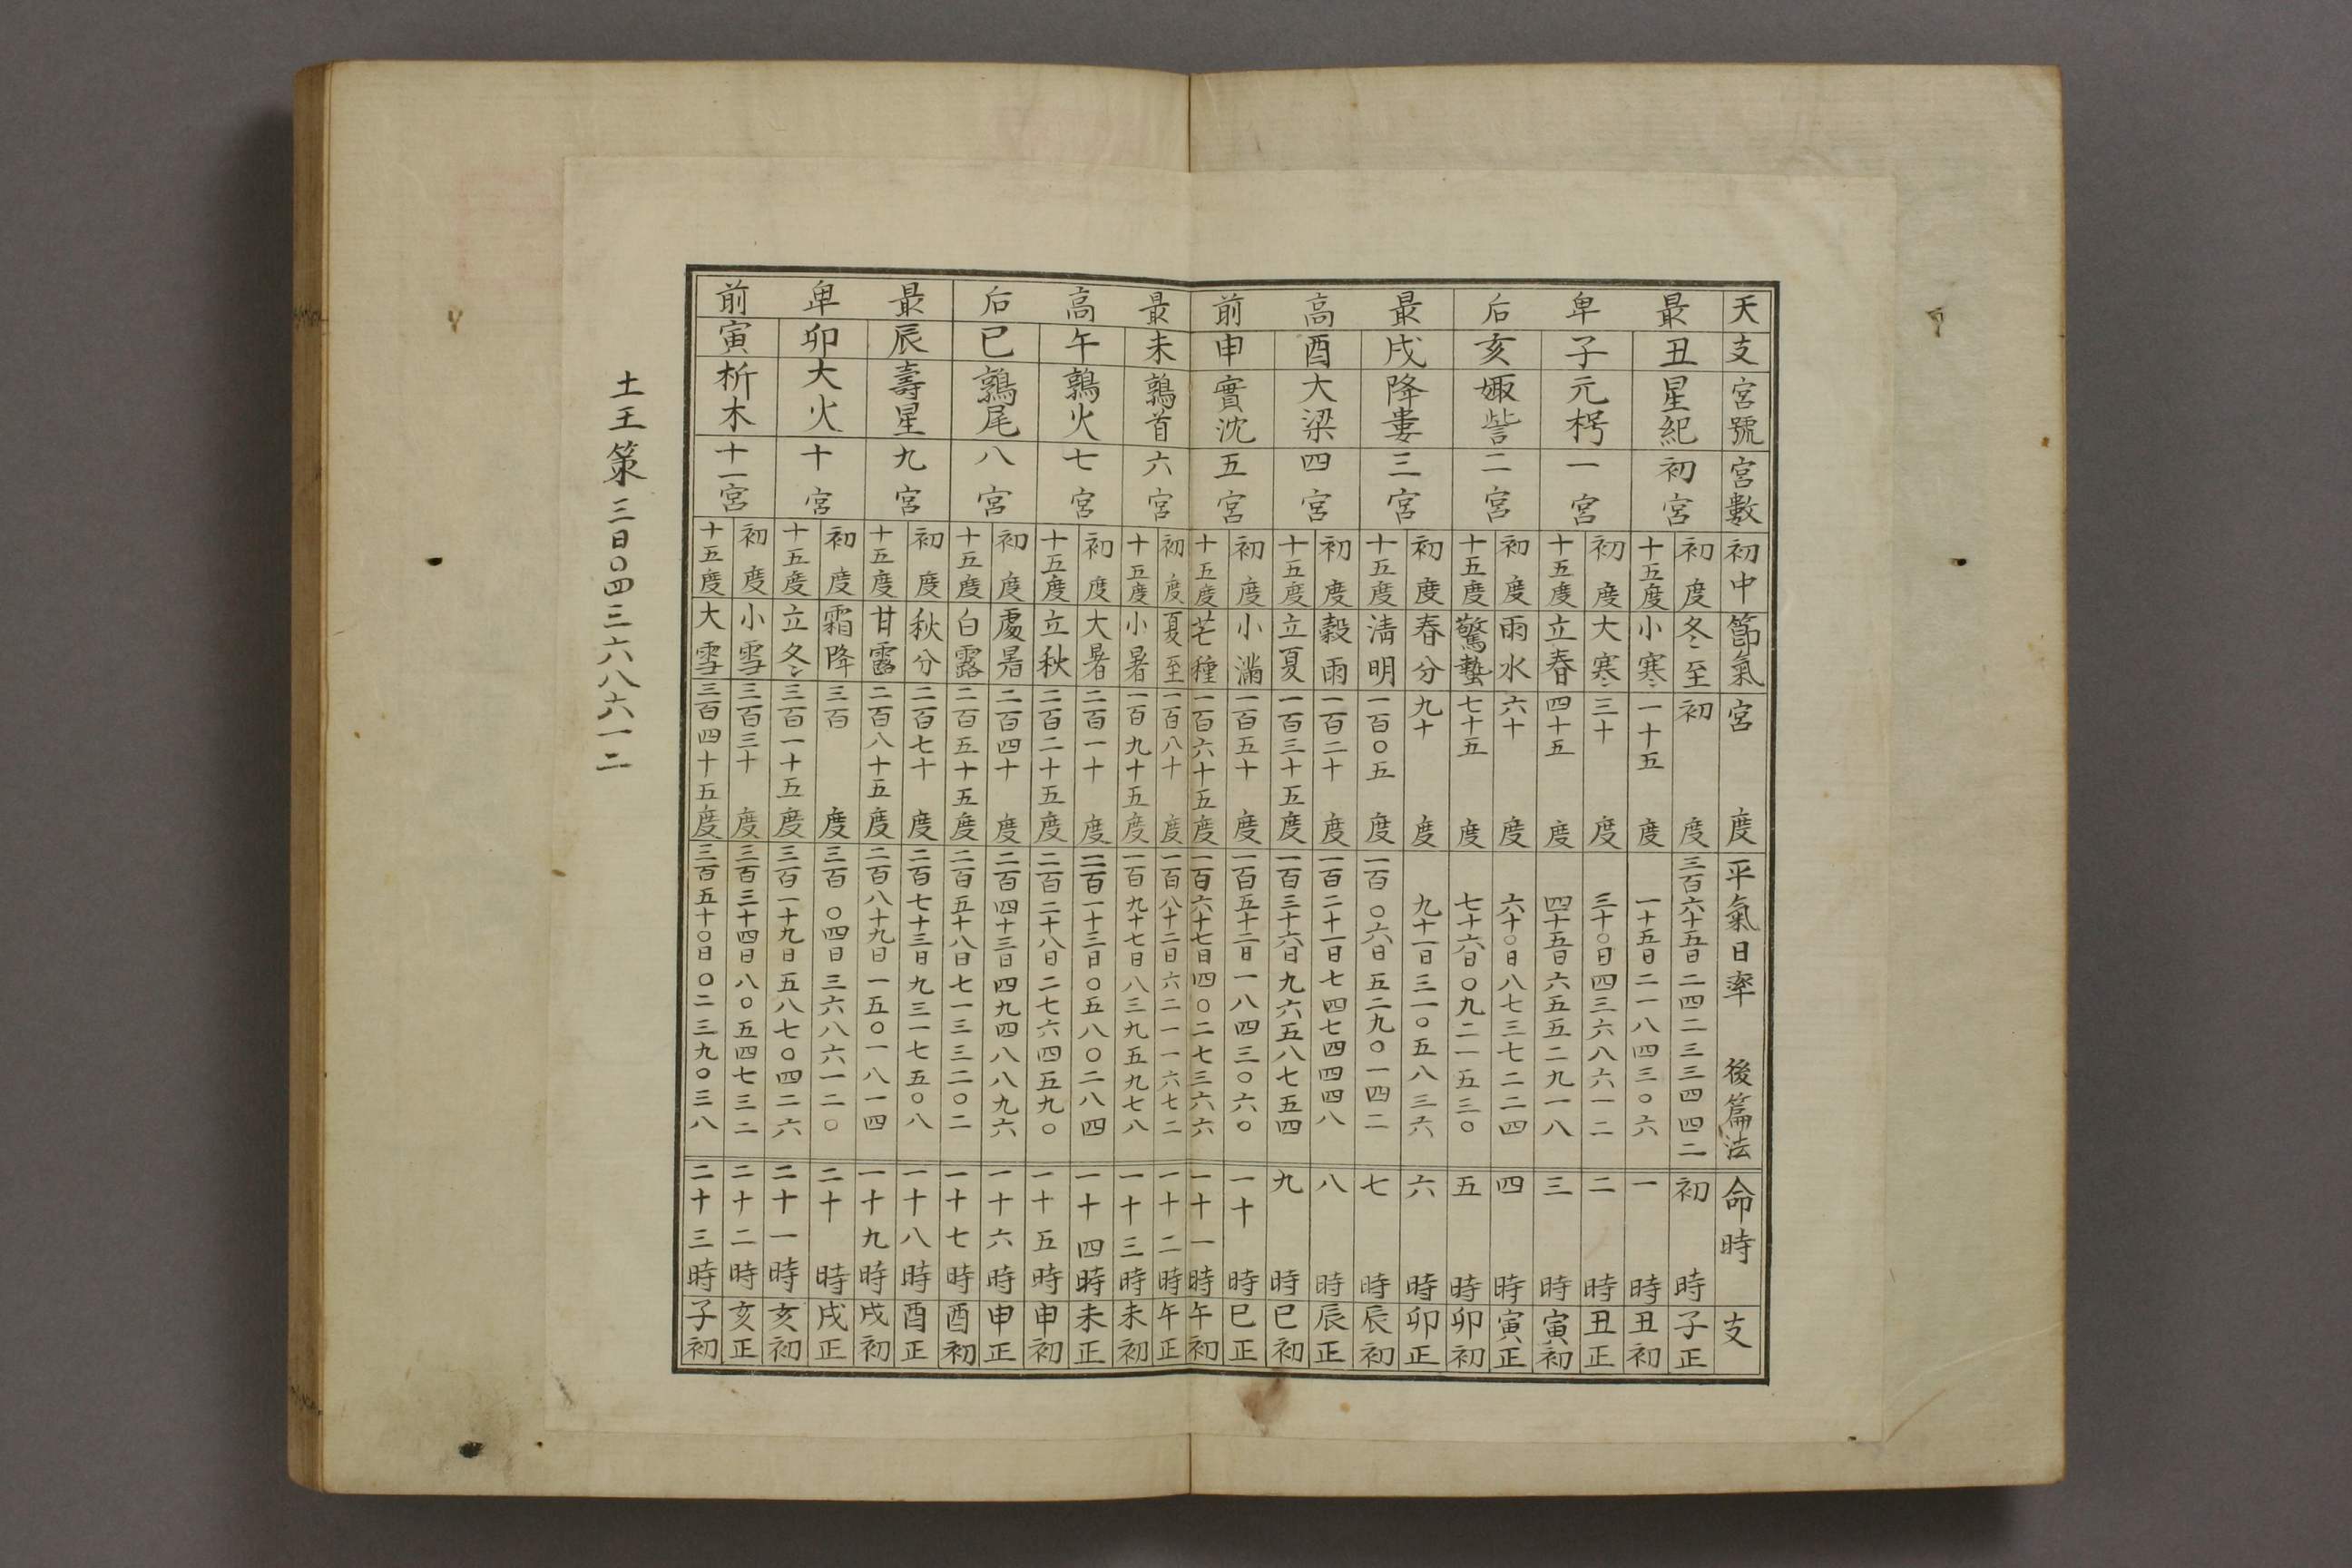 天支 宮號 宮數 初中 節氣 宮度 平氣日率 後篇法 命時 支
最卑后
丑 星紀 初宮
初度 冬至 初度 三百六十五日二四二三三四四二 初時 子正
十五度 小寒 一十五度 一十五日二一八四三〇六 一時 丑初
子 元枵 一宮
初度 大寒 三十度 三十〇日四三六八六一二 二時 丑正
十五度 立春 四十五度 四十五日六五五二九一八 三時 寅初
亥 娵訾 二宮
初度 雨水 六十度 六十〇日八七三七二二四 四時 寅正
十五度 驚蟄 七十五度 七十六日〇九二一五三〇 五時 卯初
最高前
戌 降婁 三宮
初度 春分 九十度 九十一日三一〇五八三六 六時 卯正
十五度 清明 一百〇五度 一百〇六日五二九〇一四二 七時 辰初
酉 大梁 四宮
初度 穀雨 一百二十度 一百二十一日七四七四四四八 八時 辰正
十五度 立夏 一百三十五度 一百三十六日九六五八七五四 九時 巳初
申 實沈 五宮
初度 小滿 一百五十度 一百五十二日一八四三〇六〇 一十時 巳正
十五度 芒種 一百六十五度 一百六十七日四〇二七三六六 一十一時 午初
最高后
未 鶉首 六宮
初度 夏至 一百八十度 一百八十二日六二一一六七二 一十二時 午正
十五度 小暑 一百九十五度 一百九十七日八三九五九七八 一十三時 未初
午 鶉火 七宮
初度 大暑 二百一十度 二百一十三日〇五八〇二八四 一十四時 未正
十五度 立秋 二百二十五度 二百二十八日二七六四五九〇 一十五時 申初
巳 鶉尾 八宮
初度 處暑 二百四十度 二百四十三日四九四八八九六 一十六時 申正
十五度 白露 二百五十五度 二百五十八日七一三三二〇二 一十七時 酉初
最卑前
辰 壽星 九宮
初度 秋分 二百七十度 二百七十三日九三一七五〇八 一十八時 酉正
十五度 甘露 二百八十五度 二百八十九日一五〇一八一四 一十九時 戌初
卯 大火 十宮
初度 霜降 三百度 三百〇四日三六八六一二〇 二十時 戌正
十五度 立冬 三百一十五度 三百一十九日五八七〇四二六 二十一時 亥初
寅 析木 十一宮
初度 小雪 三百三十度 三百三十四日八〇五四七三二 二十二時 亥正
十五度 大雪 三百四十五度 三百五十〇日〇二三九〇三八 二十三時 子初
土王策三日〇四三六八六一二